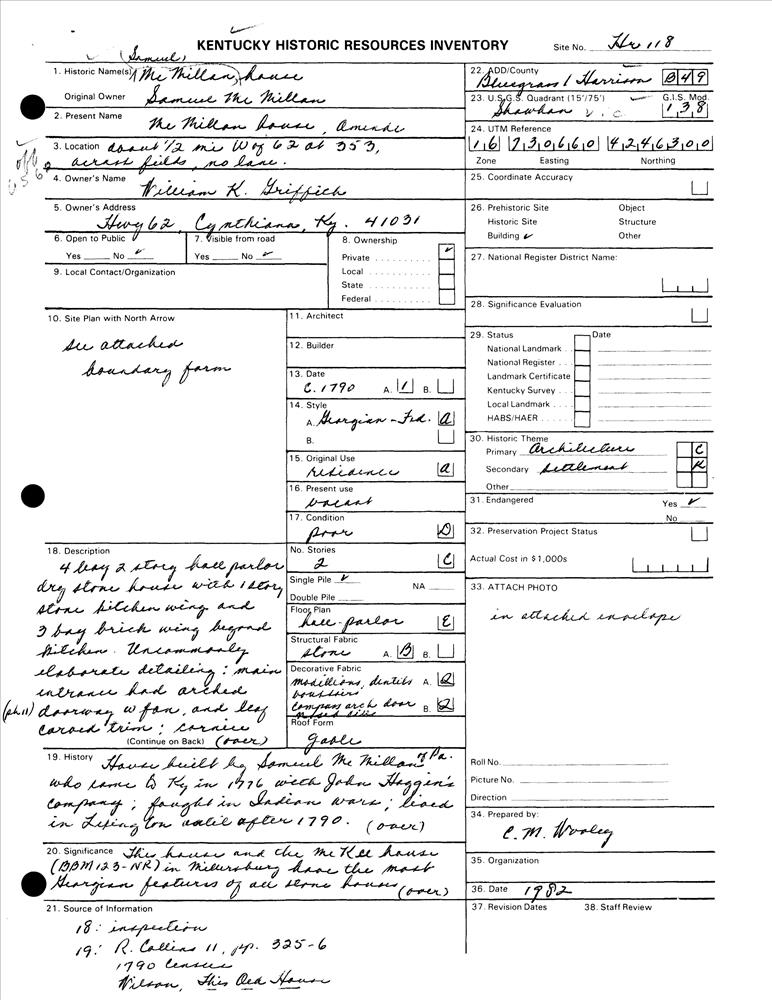 KENTUCKY HISTORIC RESOURCES INVENTORY
Site No. Hr 118
(Samuel)
1. Historic Name(s) (Mc Millan) house
Original Owner Samuel Mc Millan
2. Present Name
Mc Millan house,
3. Location about 1/2 mi W of 62 at 353,
across fields, no lane.
4. Owner's Name
William K. Griffith
5. Owner's Address
Hwy 62, Cynthiana, Ky. 41031
6. Open to Public
Yes No ✓
7. Visible from road
Yes No ✓
8. Ownership
Private ✓
Local
State
Federal
9. Local Contact/Organization
10. Site Plan with North Arrow
see attached
boundary form
11. Architect
12. Builder
13. Date
C. 1790 A. 1 B.
14. Style
A. Georgian-Fed. a
B.
15. Original Use
residence a
16. Present use
vacant
17. Condition
poor D
No. Stories
2 C
Single Pile ✓ NA
Double Pile
Floor Plan
hall-parlor E
Structural Fabric
stone A. B B.
Decorative Fabric
modillions, dentils A. Q
voussoirs
compass arch door B. 2
Roof Form
gable
18. Description
4 bay 2 story hall parlor
dry stone house with 1 story
stone kitchen wing and
3 bay brick wing beyond
kitchen. Uncommonly
elaborate detailing: main
entrance had arched
(ph 11) doorway w fan, and leaf
carved trim; cornice
(Continue on Back) (over)
19. History House built by Samuel Mc Millan of Pa.
who came to Ky in 1776 with John Haggin's
company; fought in Indian wars; lived
in Lexington until after 1790. (over)
20. Significance This house and the McKee house
(BBM 123-NR) in Millersburg have the most
Georgian features of all stone houses (over)
21. Source of Information
18: inspection
19: R. Collins 11, pp. 325-6
1790 Census
Wilson, This Old House
22. ADD/County
Bluegrass / Harrison 049
23. U.S.G.S. Quadrant (15'/75') G.I.S. Mod.
Shawhan 138
24. UTM Reference
16 730660 4246300
Zone Easting Northing
25. Coordinate Accuracy
26. Prehistoric Site Object
Historic Site Structure
Building ✓ Other
27. National Register District Name:
28. Significance Evaluation
29. Status Date
National Landmark
National Register
Landmark Certificate
Kentucky Survey
Local Landmark
HABS/HAER
30. Historic Theme
Primary Architecture C
Secondary settlement K
Other
31. Endangered Yes ✓
No
32. Preservation Project Status
Actual Cost in $1,000s
33. ATTACH PHOTO
in attached envelope
Roll No.
Picture No.
Direction
34. Prepared by:
C. M. Wooley
35. Organization
36. Date 1982
37. Revision Dates 38. Staff Review